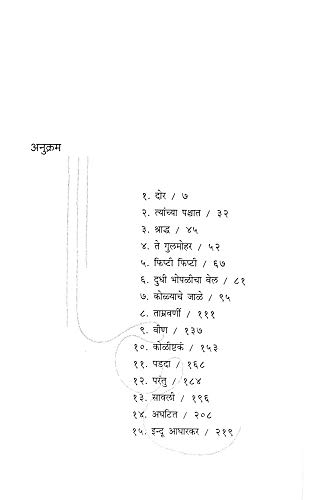 अनुक्रम
१. दोर / ७
२. त्यांच्या पश्चात / ३२
३. श्राद्ध / ४५
४. ते गुलमोहर / ५२
५. फिफ्टी फिफ्टी / ६७
६. दुधी भोपळीचा वेल / ८१
७. कोळ्याचे जाळे / ९५
८. ताम्रवर्णी / १११
९. वीण / १३७
१०. कोळीष्टकं / १५३
११. पडदा / १६८
१२. परंतु / १८४
१३. सावली / १९६
१४. अघटित / २०८
१५. इन्दू आधारकर / २१९